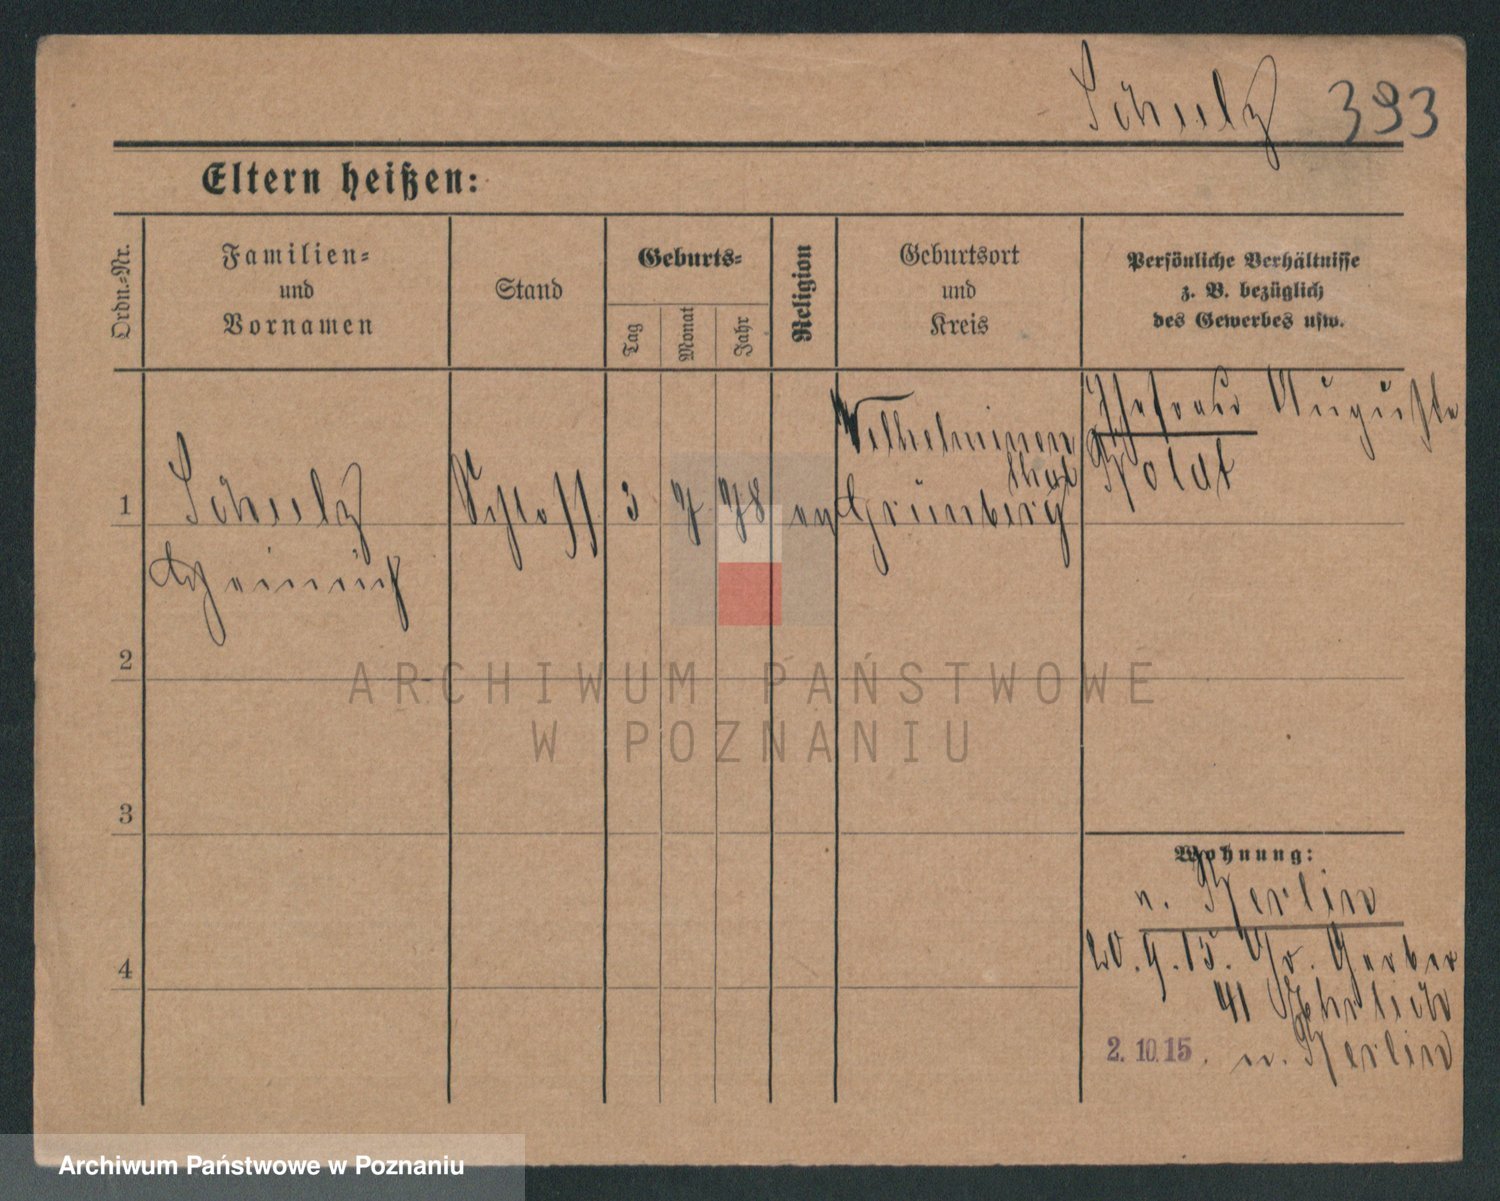 Schulz 393
Eltern heißen:
Ordn.-Nr.
Familien-
und
Vornamen
Stand
Geburts-
Tag
Monat
Jahr
Religion
Geburtsort
und
Kreis
Persönliche Verhältnisse
z. B. bezüglich
des Gewerbes usw.
Ehefrau Auguste
Wilhelminen
thal
1 Schulz Schloss 3 7 78 ev Grünberg
Heinrich
2
ARCHIWUM PAŃSTWOWE
W POZNANIU
3
Wohnung:
n. Berlin
20.9.15. Gr. Gerber
4
41 Ehrlich
2.10.15. n. Berlin
Archiwum Państwowe w Poznaniu